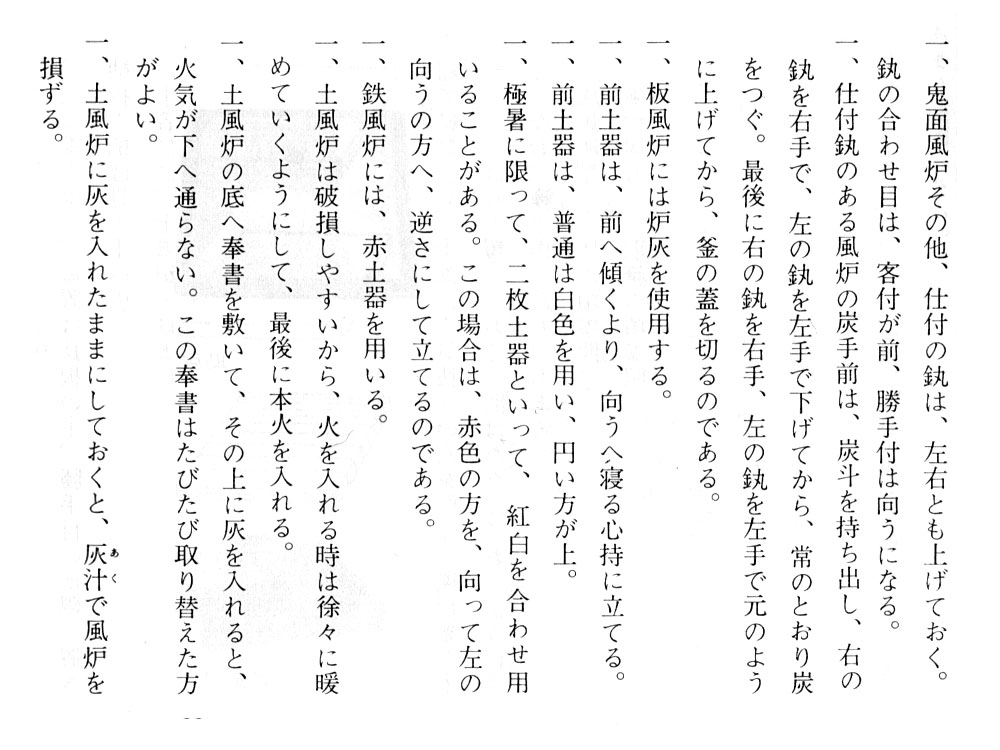 一、鬼面風炉その他、仕付の釻は、左右とも上げておく。
釻の合わせ目は、客付が前、勝手付は向うになる。
一、仕付釻のある風炉の炭手前は、炭斗を持ち出し、右の
釻を右手で、左の釻を左手で下げてから、常のとおり炭
をつぐ。最後に右の釻を右手、左の釻を左手で元のよう
に上げてから、釜の蓋を切るのである。
一、板風炉には炉灰を使用する。
一、前土器は、前へ傾くより、向うへ寝る心持に立てる。
一、前土器は、普通は白色を用い、円い方が上。
一、極暑に限って、二枚土器といって、紅白を合わせ用
いることがある。この場合は、赤色の方を、向って左の
向うの方へ、逆さにして立てるのである。
一、鉄風炉には、赤土器を用いる。
一、土風炉は破損しやすいから、火を入れる時は徐々に暖
めていくようにして、最後に本火を入れる。
一、土風炉の底へ奉書を敷いて、その上に灰を入れると、
火気が下へ通らない。この奉書はたびたび取り替えた方
がよい。
一、土風炉に灰を入れたままにしておくと、灰汁で風炉を
あく
損ずる。